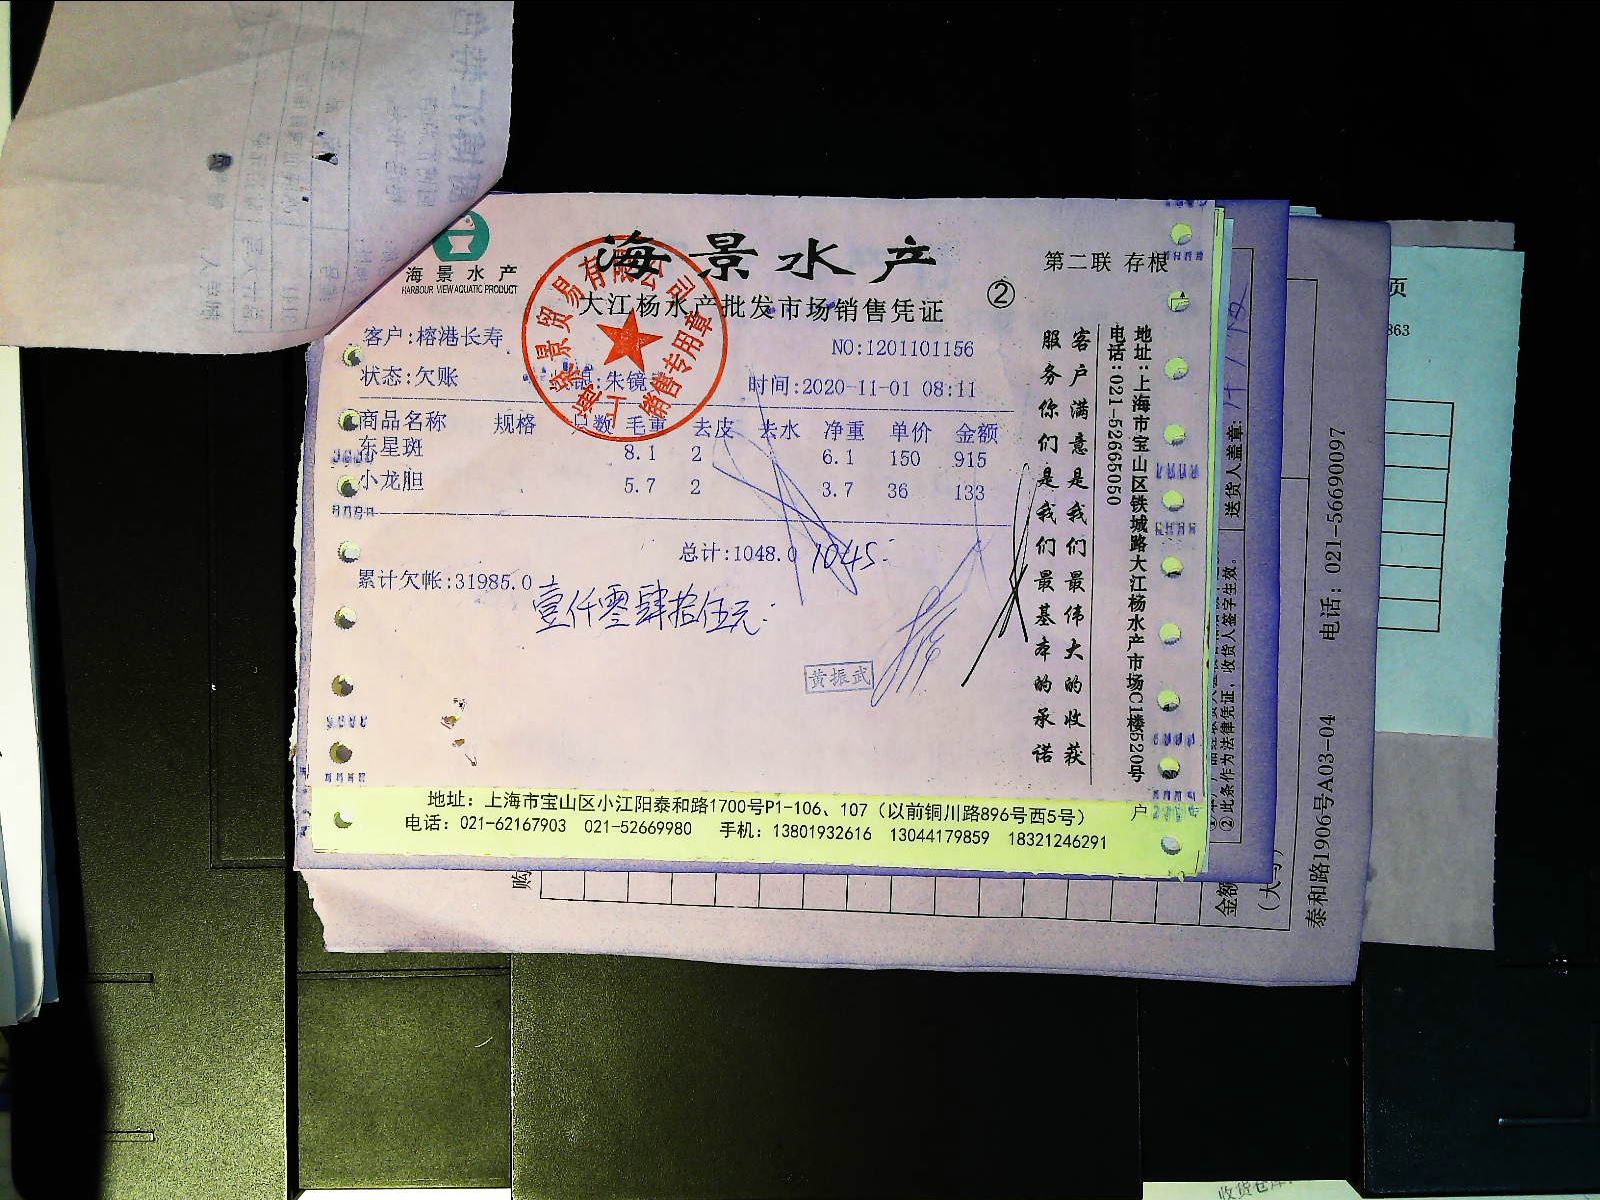 海景水产
HARBOUR VIEW AQUATIC PRODUCT
海景水产
大江杨水产批发市场销售凭证
②
第二联 存根
客户:榕港长寿
NO:1201101156
状态:欠账
朱镜
时间:2020-11-01 08:11
商品名称 规格 只数 毛重 去皮 去水 净重 单价 金额
东星斑 8.1 2 6.1 150 915
小龙胆 5.7 2 3.7 36 133
总计:1048.0 1045
累计欠帐:31985.0
壹仟零肆拾伍元
黄振武
销售专用章
客户满意是我们最伟大的收获
服务你们是我们最基本的承诺
地址:上海市宝山区铁城路大江杨水产市场C1楼520号
电话:021-52665050
地址:上海市宝山区小江阳泰和路1700号P1-106、107(以前铜川路896号西5号)
电话:021-62167903 021-52669980 手机:13801932616 13044179859 18321246291
户
送货人盖章:
②此条作为法律凭证,收货人签字生效。
购
金额
泰和路1906号A03-04 电话:021-56690097
页
863
收货仓库: